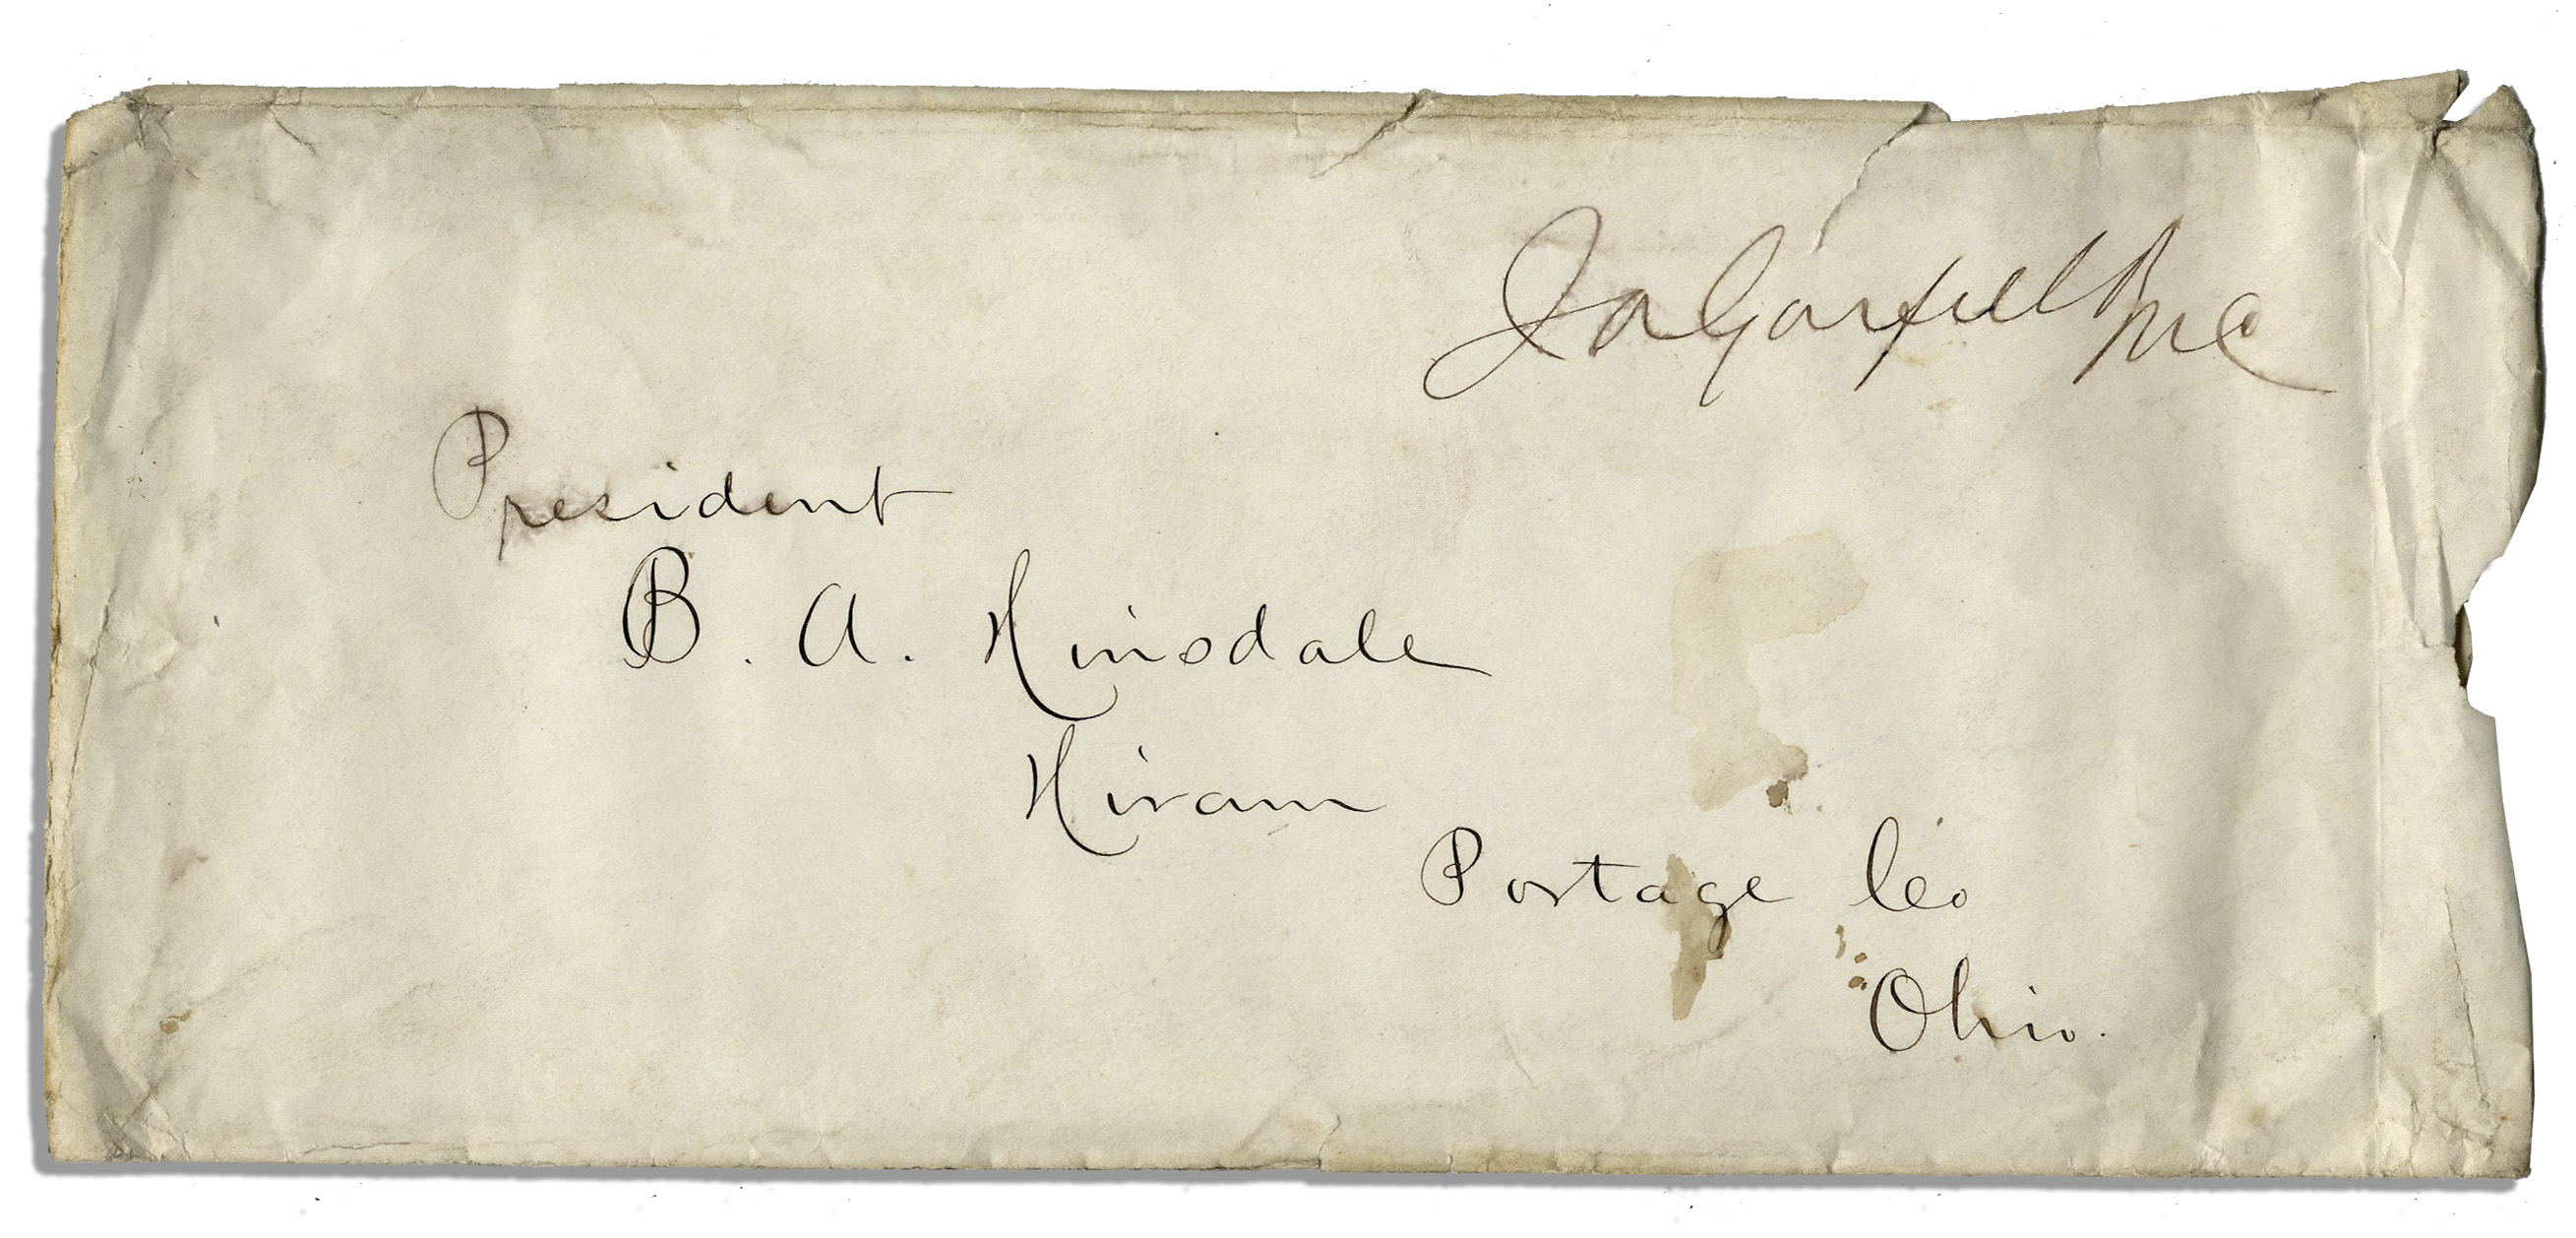 JAGarfield MC
President
B. A. Hinsdale
Hiram
Portage Co
Ohio.